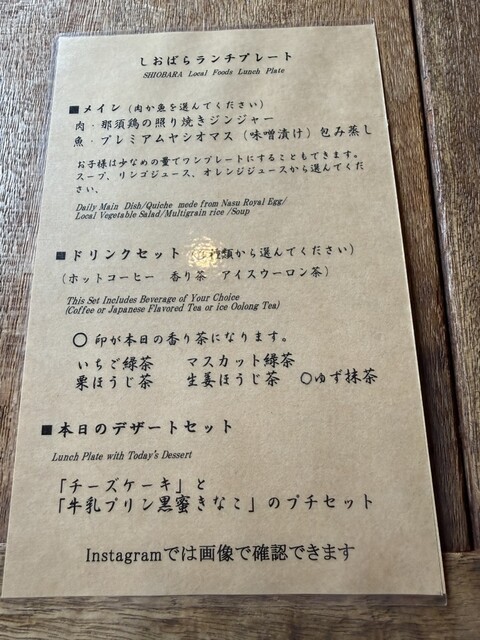 しおばらランチプレート
SHIOBARA Local Foods Lunch Plate
■メイン（肉か魚を選んでください）
肉・那須鶏の照り焼きジンジャー
魚・プレミアムヤシオマス（味噌漬け）包み蒸し
お子様は少なめの量でワンプレートにすることもできます。
スープ、リンゴジュース、オレンジジュースから選んでくだ
さい、
Daily Main Dish/Quiche made from Nasu Royal Egg/
Local Vegetable Salad/Multigrain rice /Soup
■ドリンクセット（種類から選んでください）
（ホットコーヒー 香り茶 アイスウーロン茶）
This Set Includes Beverage of Your Choice
(Coffee or Japanese Flavored Tea or ice Oolong Tea)
○印が本日の香り茶になります。
いちご緑茶 マスカット緑茶
栗ほうじ茶 生姜ほうじ茶 ○ゆず抹茶
■本日のデザートセット
Lunch Plate with Today's Dessert
「チーズケーキ」と
「牛乳プリン黒蜜きなこ」のプチセット
Instagramでは画像で確認できます